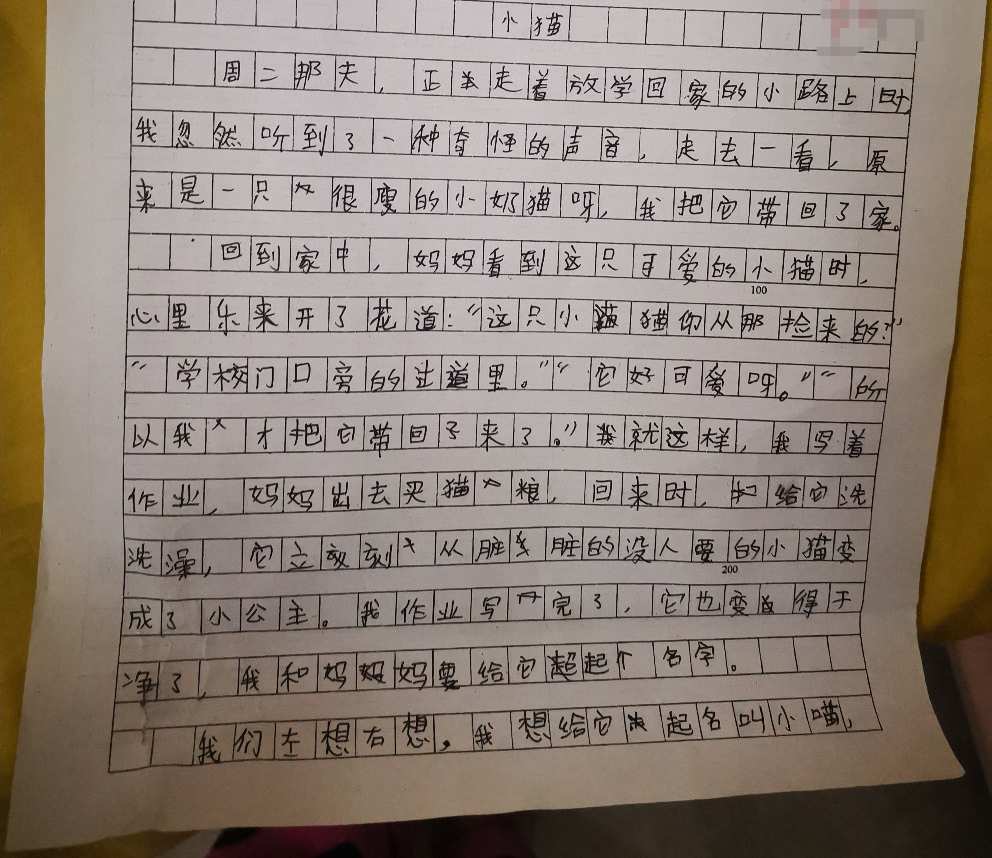 小猫
周二那天，正当走着放学回家的小路上时
我忽然听到了一种奇怪的声音，走去一看，原
来是一只很瘦的小奶猫呀，我把它带回了家。
回到家中，妈妈看到这只可爱的小猫时，
100
心里乐来开了花道：“这只小猫你从那捡来的？”
“学校门口旁的过道里。”“它好可爱呀。”“所
以我才把它带回来了。”我就这样，我写着
作业，妈妈出去买猫粮，回来时，给它洗
洗澡，它立刻从脏脏的没人要的小猫变
200
成了小公主。我作业写完了，它也变得干
净了，我和妈妈要给它起个名字。
我们左想右想，我想给它起名叫小喵，